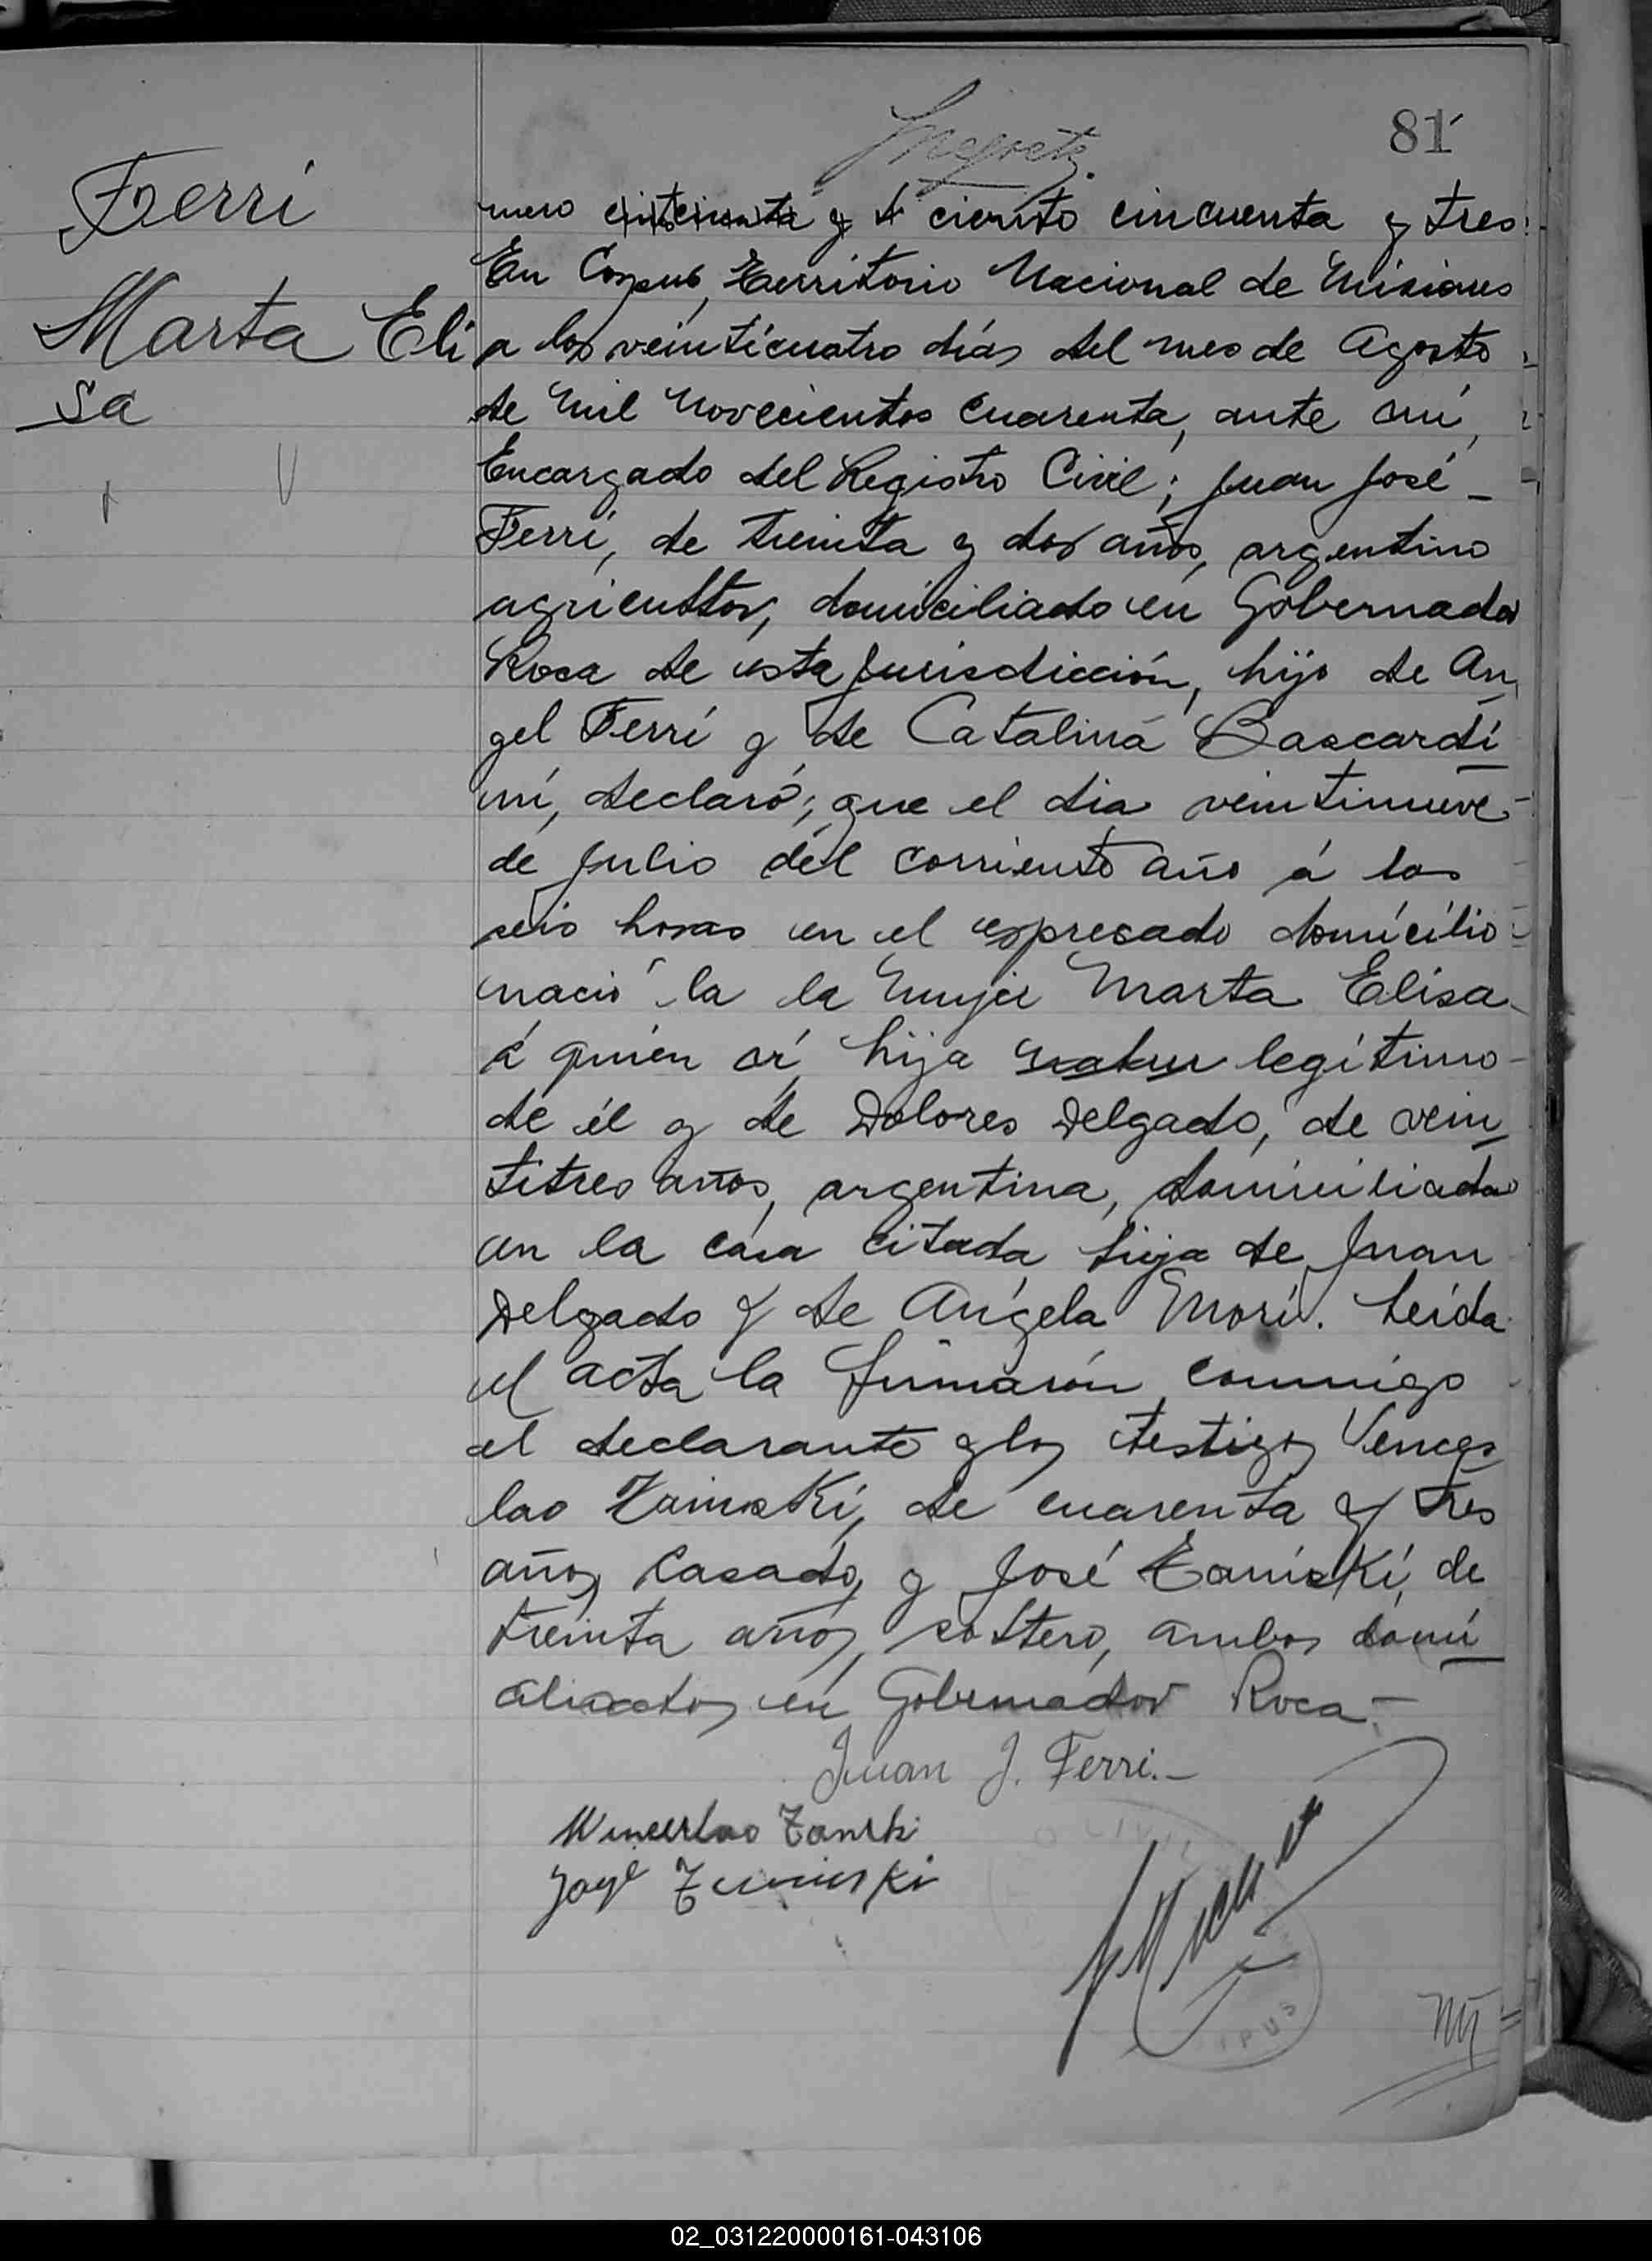 81
Ferri
Marta Eli
sa
mero cincuenta y t ciento cincuenta y tres.
En Corpus, Territorio Nacional de Misiones
a los veinticuatro días del mes de Agosto
de Mil Novecientos Cuarenta, ante mí,
Encargado del Registro Civil; Juan José
Ferri, de treinta y dos años, argentino
agricultor, domiciliado en Gobernador
Roca de esta Jurisdicción, hijo de An
gel Ferri y de Catalina Bascardi
ni, declaró; que el dia veintinueve
de Julio del corriente año á las
seis horas en el espresado domicilio
nació la la Mujer Marta Elisa
á quien oí, hija natur legitimo
de él y de Dolores Delgado, de vein
titres años, argentina, domiciliada
en la casa citada hija de Juan
Delgado y de Angela Mori. Leida
el acta la firmaron conmigo
el declarante y los testigos Vences
lao Zainski, de cuarenta y tres
años, casado, y José Zaniski, de
treinta años, soltero, ambos domi
ciliados en Gobernador Roca.-
Juan J. Ferri.-
Wenceslao Zanski
José
02_031220000161-043106